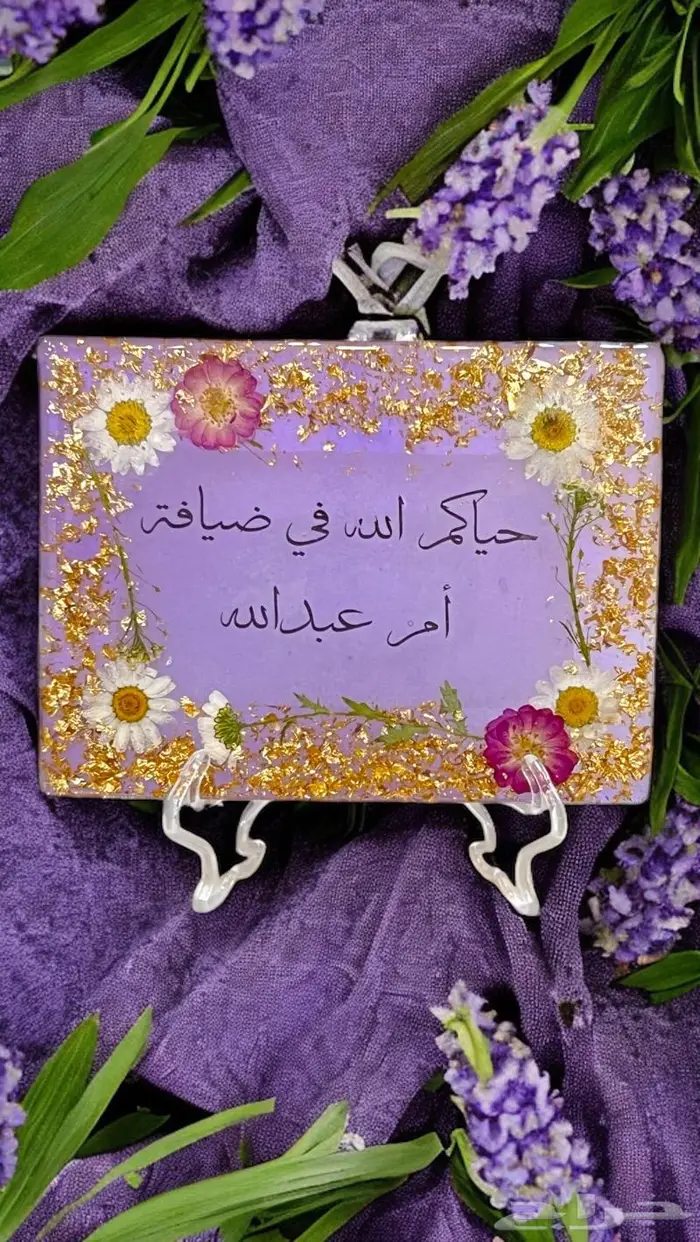 حياكم الله في ضيافة
أم عبدالله
حراج